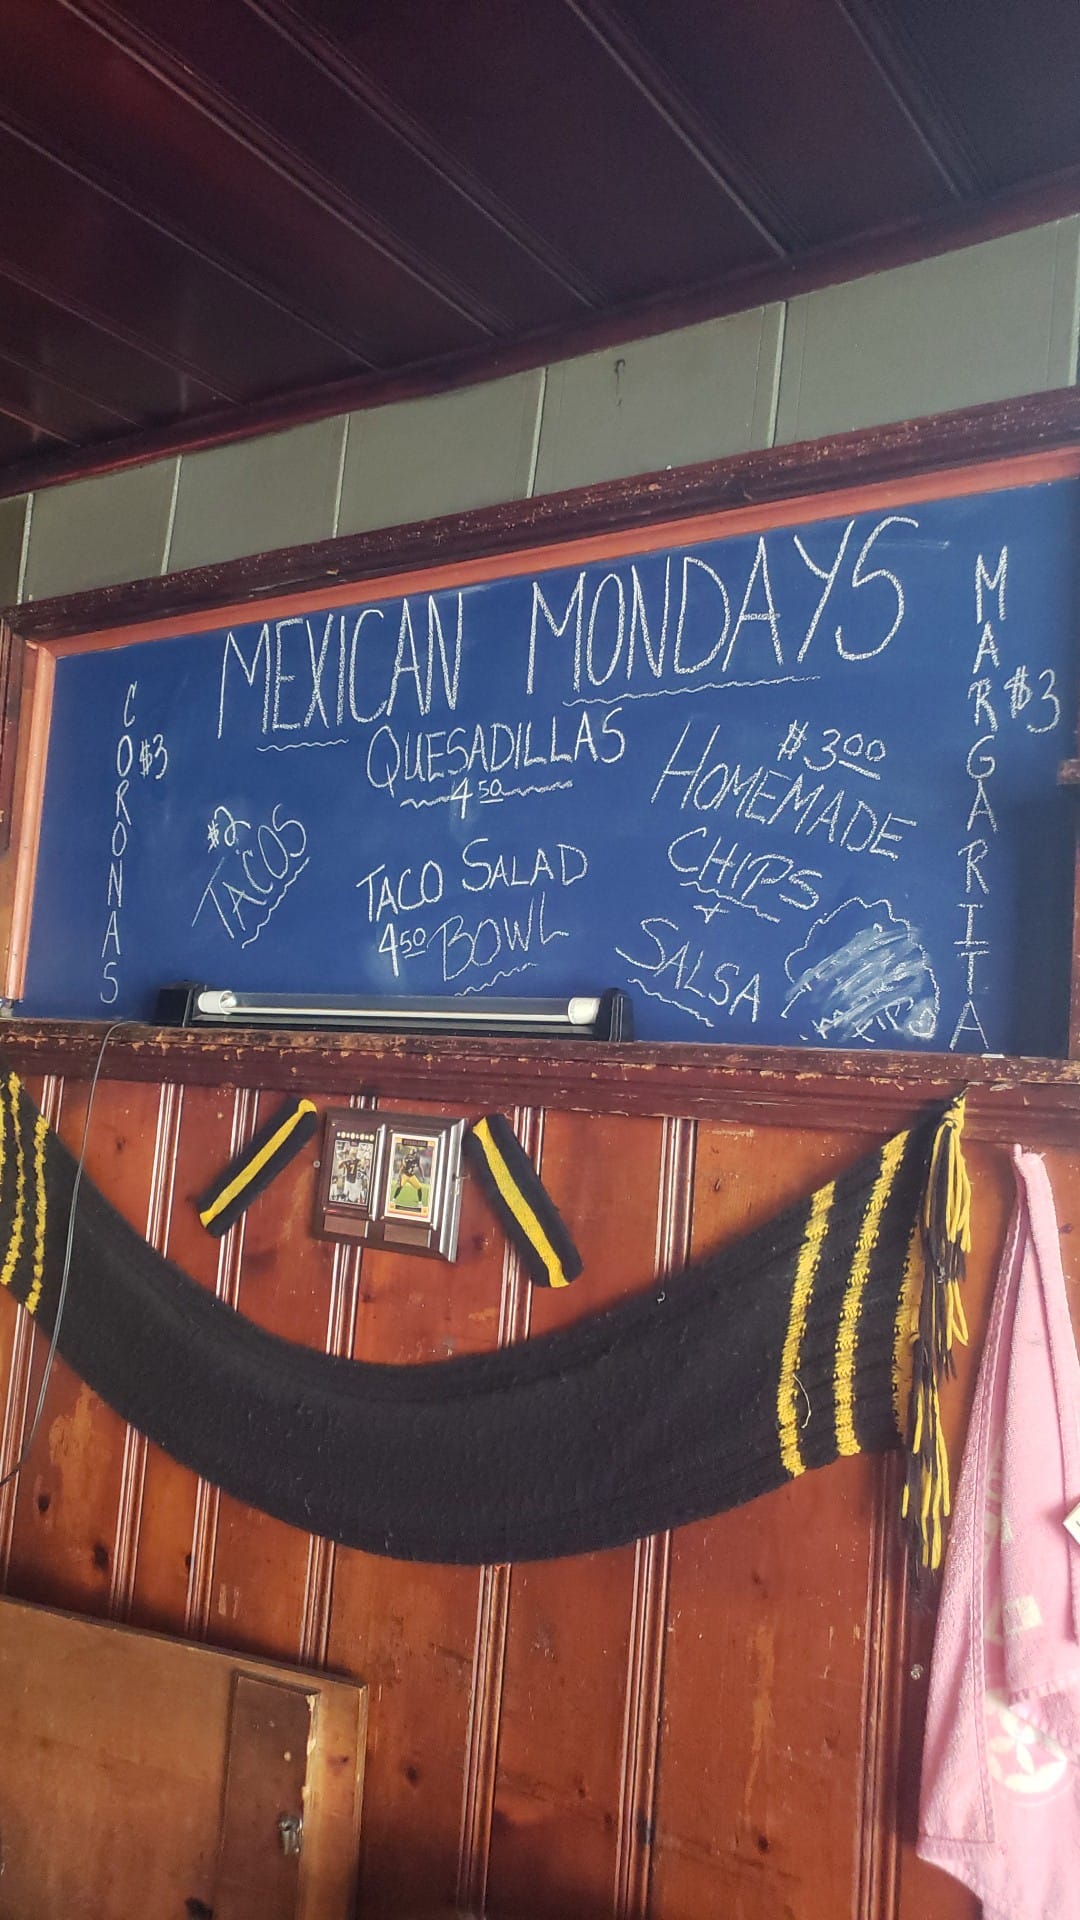 MEXICAN MONDAYS
CORONAS
$3
QUESADILLAS
4.50
$2
TACOS
TACO SALAD
4.50 BOWL
$3.00
HOMEMADE
CHIPS
+
SALSA
MARGARITA
$3